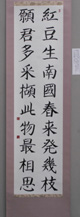 紅豆生南國春来発幾枝
願君多采擷此物最相思